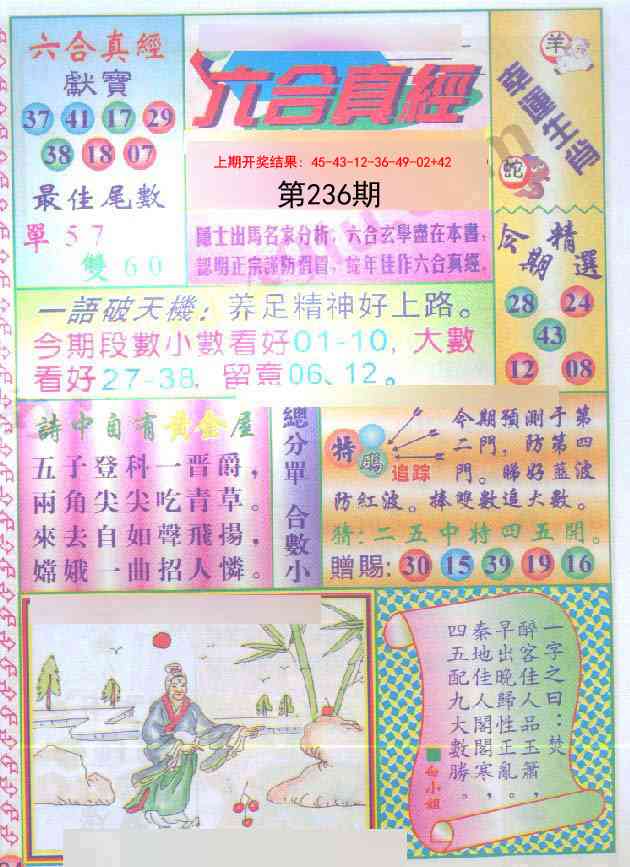 六合真經
獻寶
37 41 17 29
38 18 07
最佳尾數
單57
雙60
六合真經
上期开奖结果：45-43-12-36-49-02+42
第236期
隱士出馬名家分析，六合玄學盡在本書，
認明正宗謹防假冒，蛇年佳作六合真經。
羊
幸運生肖
蛇
今期精選
28 24
43
12 08
一語破天機：养足精神好上路。
今期段數小數看好01-10，大數
看好27-38，留意06、12。
詩中自有黃金屋
五子登科一晋爵，
兩角尖尖吃青草。
來去自如聲飛揚，
嫦娥一曲招人憐。
總分單 合數小
特碼
追踪
今期預測手第
二門，防第四
門。睇好藍波
防紅波。棒雙數追大數。
猜：二五中特四五開。
贈賜：30 15 39 19 16
一字之曰：焚
醉客佳人品玉簫，
早出晚歸性正亂，
秦地佳人閣閣寒。
四五配九大數勝
白小姐